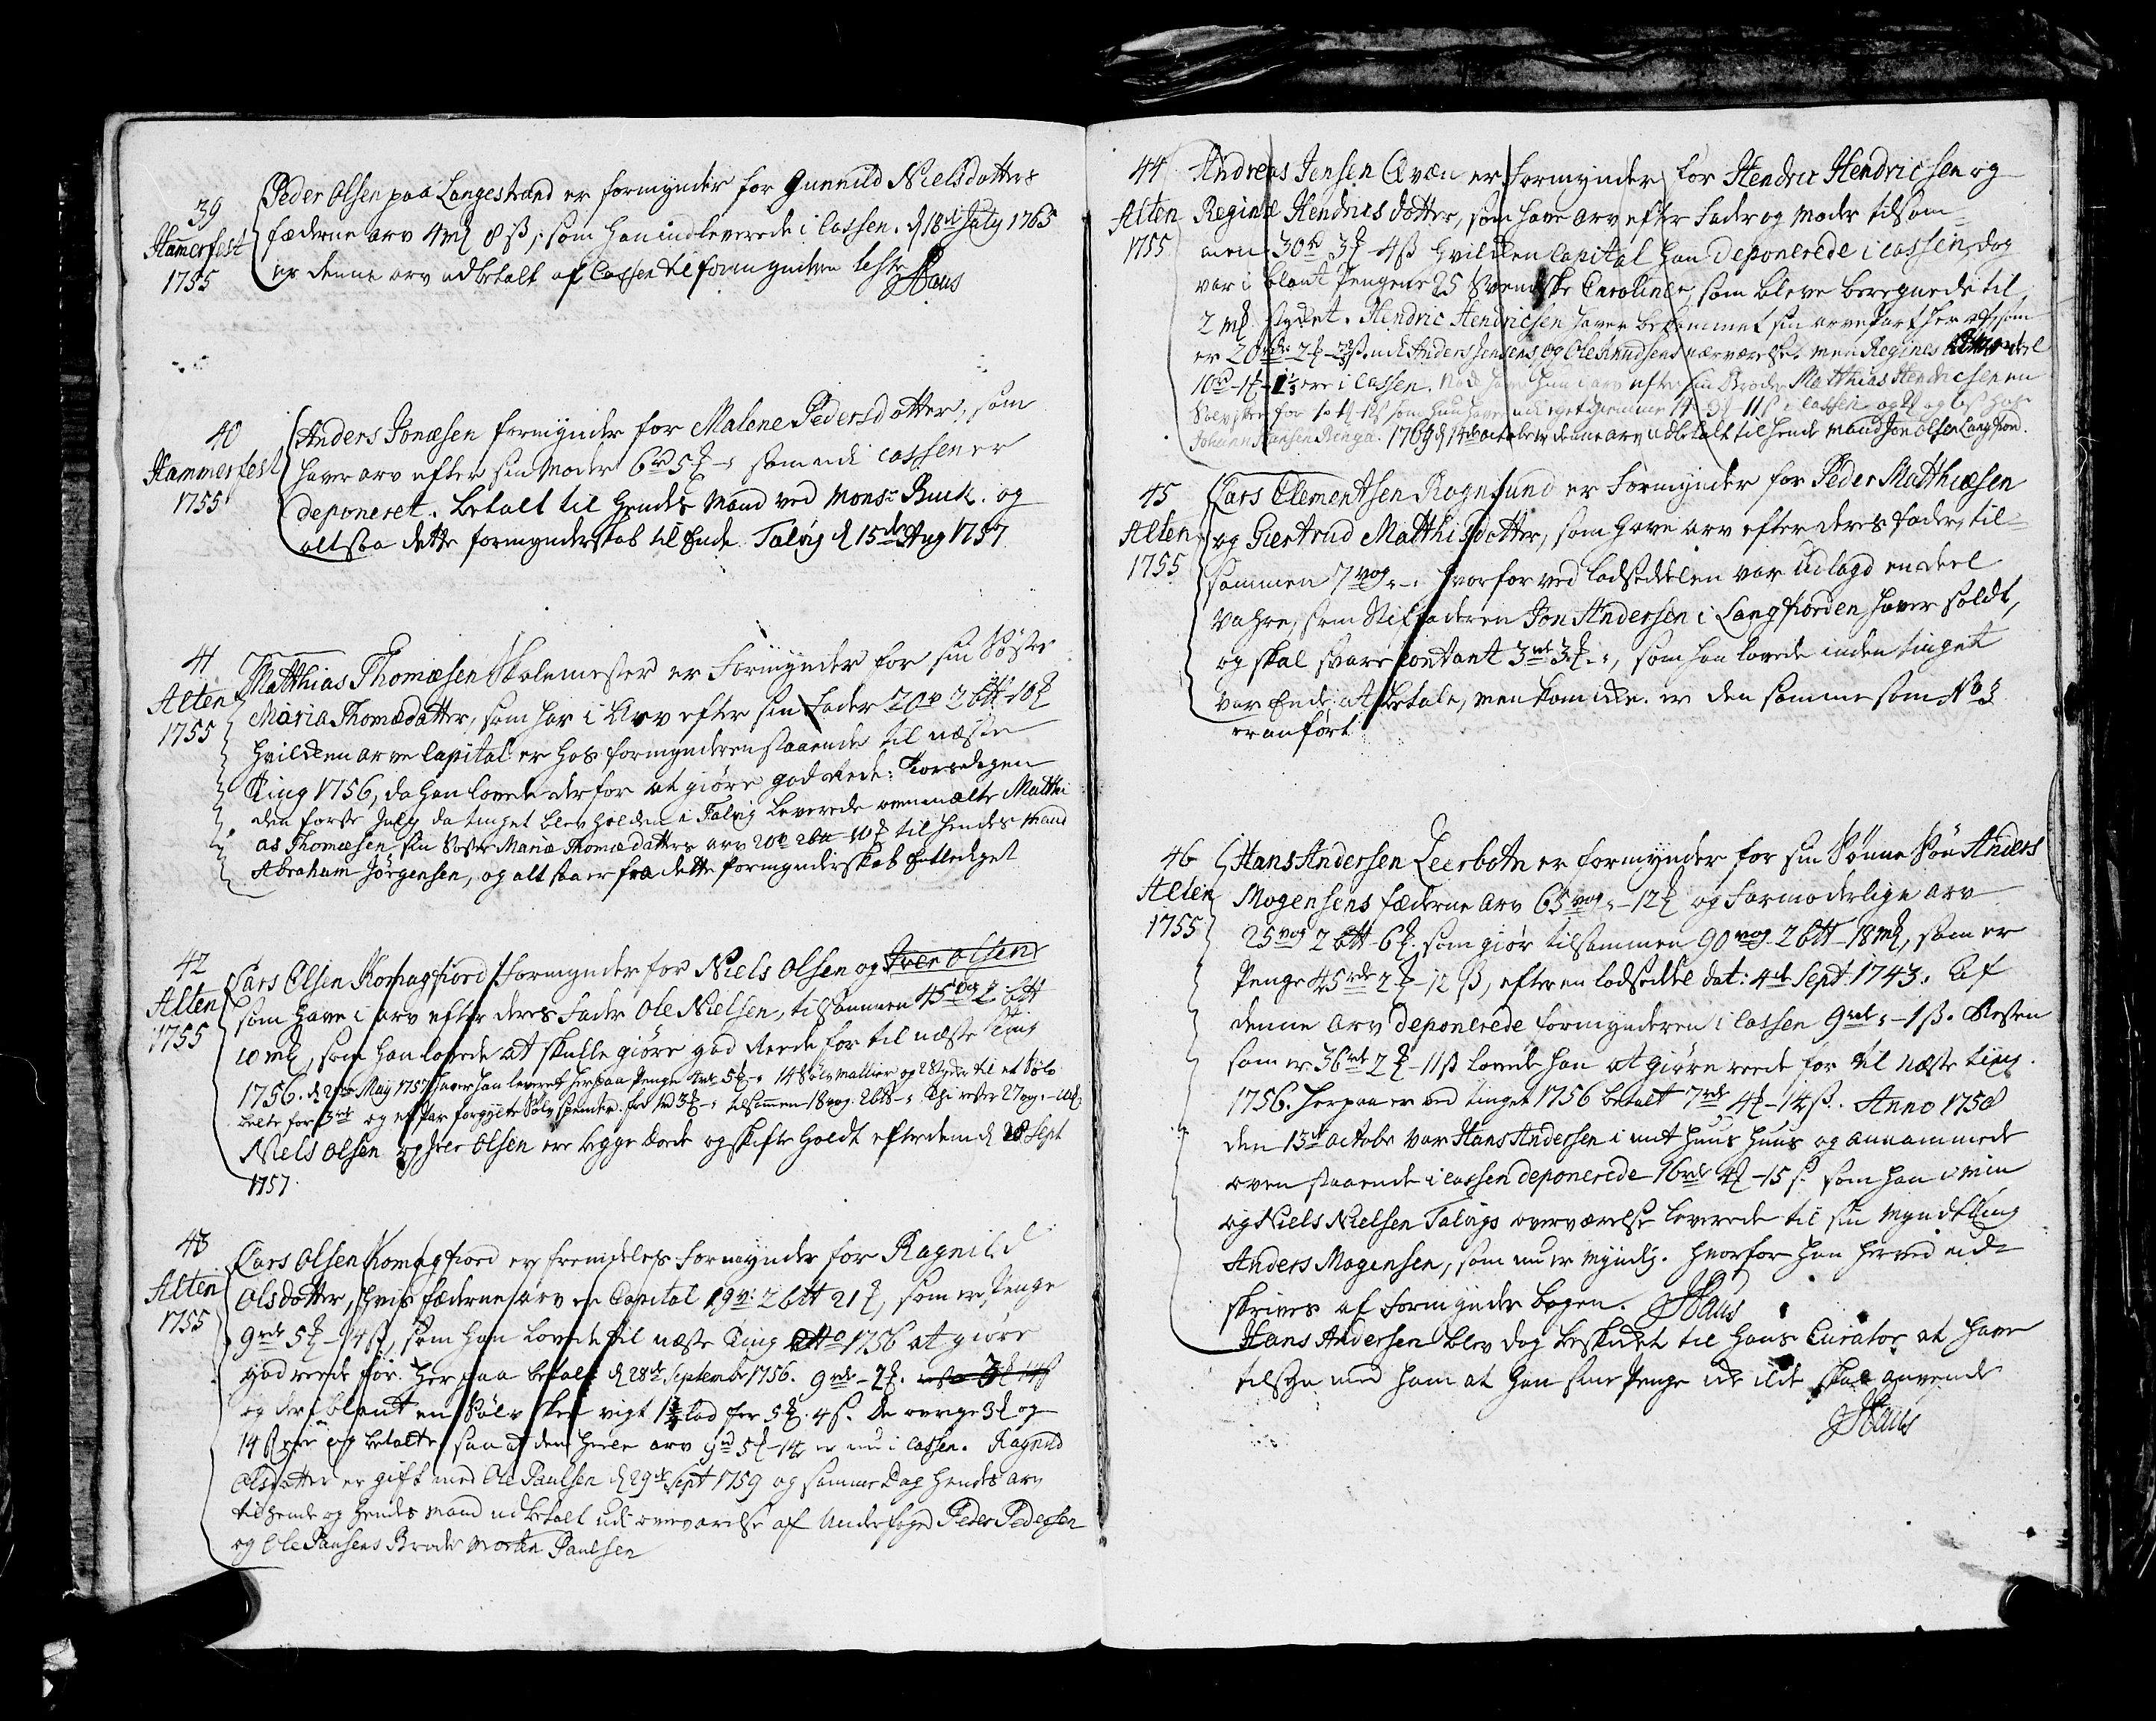 39
Hamerfest
1755
Peder Olsen paa Langestrand er formynder for Gunnild Nielsdatters
fæderne arv 4mk 8 ß, som han indleverede i Cassen. d 18de July 1765
er denne arv udbetalt af Cassen til formynderen
Haus
40
Hammerfest
1755
Anders Jonæsen formynder for Malene Pedersdatter, som
haver arv efter sin Moder 6rd 5 som udi cassen er
deponeret. betalt til hendes Mand ved Monsr Buck. og
altsaa dette formynderskab til Ende Talvig d 15de Aug 1757
41
Alten
1755
Matthias Thomæsen Skolemester er Formynder for sin Søster
Maria Thomædatter, som har i Arv efter sin Fader 20v 2 btt 10
hvilken arve Capital er hos formynderen staaende til næste
Ting 1756, da han lovede derfor at giøre god Rede: Torsdagen
den første July da tinget blev holden i Talvig leverede ommælte Matthi
as Thomæsen sin Søster Mariæ Thomædatters arv 20v 2btt 10 til hendes Mand
Abraham Jørgensen, og altsaa er fra dette formynderskab entlediget
42
Alten
1755
Lars Olsen Komagfiord Formynder for Niels Olsen og Iver Olsen
som have i arv efter deres Fader Ole Nielsen, tilsammen 45 vog 2 btt
10 mk, som han lovede at skulle giøre god Rede for til næste Ting
1756. d May 1757 haver han leveret herpaa Penge 5 14 Sølv Mallier og 2 til et Sølv
belte for 3rd og et Par forgylte Sølv for 1rd 3 tilsamen 18vog. 2btt resten 27vog.
Niels Olsen og Iver Olsen ere begge døde og skifte holdt efter dem d 28 Sept
1757.
43
Alten
1755
Lars Olsen Komagfiord er fremdeles Formynder for Ragnild
Olsdatter, hvis fæderne arv er Capital 19v: 2 btt 21, som er Penge
9rd 5 14ß, som han lovede til næste Ting 1756 at giøre
god rede for. herpaa betalt d 28de September 1756. 9rd 2. rest 3 14ß
og der iblant en Sølv skee vigt 1 lod for 5. 4ß. De øvrige 3 og
14ß ere og betalte, saa at den heele arv 9rd 5 14 er nu i Cassen. Ragnild
Olsdatter er gift med Ole Paulsen d 29de Sept 1759 og samme Dag hendes arv
til hende og hendes Mand udbetalt udi overværelse af Underfoged Peder Pedersen
og Ole Paulsens Broder Morten Paulsen
44
Alten
1755
Andreas Jensen Qvæn er Formynder for Hendric Hendricsen og
Reginæ Hendricsdatter, som have arv efter Fader og Moder tilsam-
men 30rd 3 4ß hvilken Capital han deponerede i Cassen, dog
var iblant Pengene 25 Svendske Caroliner, som bleve beregnede til
2 mk stycket. Hendric Hendricsen haver bekommet sin arve Part her af, som
er 20rd 2 udi Anders Jensens og Ole Knudsens nærværelse. men Regines deel
10rd 1 ere i Cassen. Nok haver hun i arv efter sin Broder Matthias Hendricsen en
Sølv for som hun haver udi eget giemme 11ß i Cassen og hos
Johann Hansen Ringa. 1769 d 14de october er denne arv udbetalt til hendes Mand Jon Olsen Langfiord.
45
Alten
1755
Lars Clementsen Rognsund er Formynder for Peder Matthiæsen
og Giertrud Matthisdatter, som have arv efter deres Fader til-
sammen 7 vog hvorfor ved lodseddelen var udlagd en deel
Vahre, som Stiffaderen Jon Andersen i Langfiorden haver soldt,
og skal svare contant 3rd 3, som han lovede inden tinget
var Ende at betale, men kom icke. er den samme som No 3
er anført
46
Alten
1755
Hans Andersen Leerbotn er formynder for sin Sønne Søn Anders
Mogensens fæderne Arv 65 vog 12 og Farmoderlige arv
25 vog 2 btt 6. som giør tilsammen 90 vog 2 btt 18 mk, som er
Penge 45rd 2 12 ß, efter en lodseddel dat: 4de Sept. 1743. Af
denne Arv deponerede formynderen i Cassen 9rd 1 ß. Resten
som er 36rd 2 11ß lovede han at giøre rede for til næste ting
1756. herpaa er ved tinget 1756 betalt 7rd 4 14ß. Anno 1758
den 13de octobr var Hans Andersen i mit huus og annammede
oven staaende i Cassen deponerede 16rd 4 15ß som han i min
og Niels Nielsen Talvigs overværelse leverede til sin Myndtling
Anders Mogensen, som nu er myndig. hvorfor han herved ud-
skrives af Formynder bogen. Haus
Hans Andersen blev dog beskicket til hans Curator at have
tilsyn med ham at han sine Penge icke ilde skal anvende
Haus